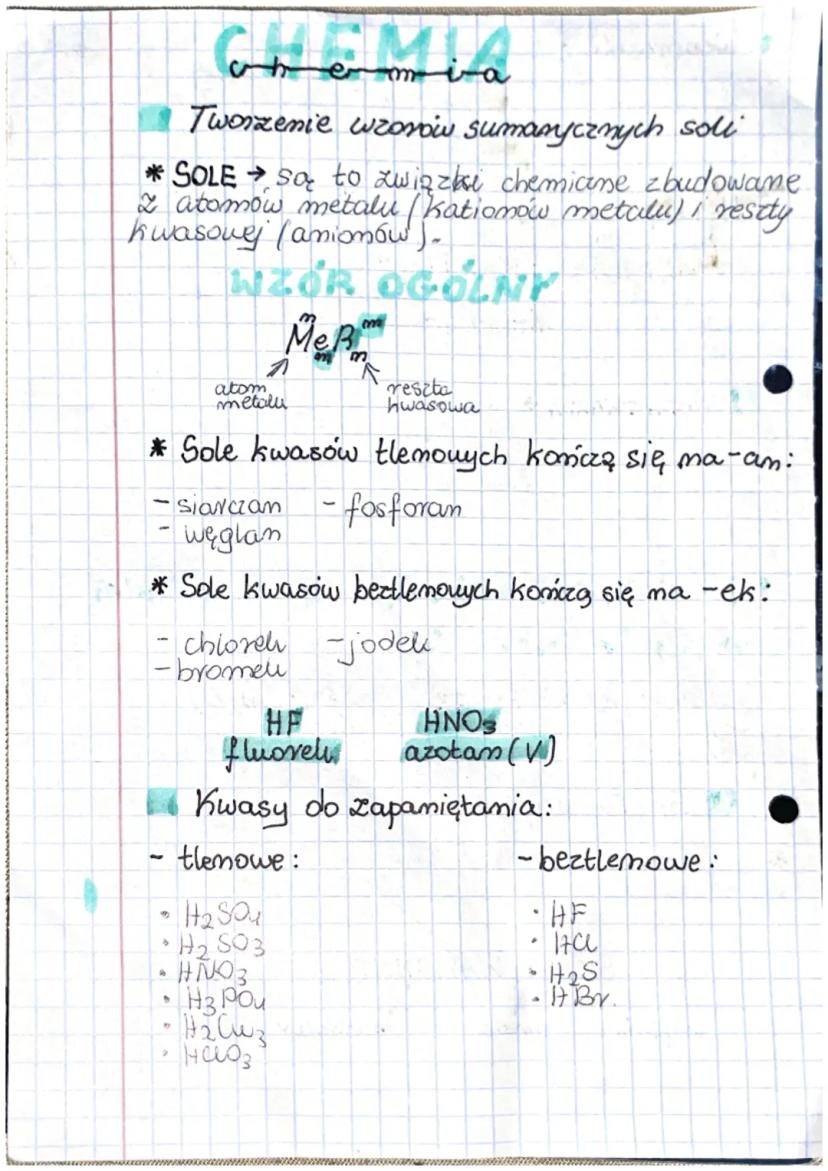 CHEMIA
chemia
Tworzenie wzorów sumarycznych soli
* SOLE → są to związki chemiczne zbudowane
z atomów metalu (kationów metalu) i reszty
kwasowej (anionów).
WZÓR OGÓLNY
n m
MeR
m n
atom metalu
reszta kwasowa
* Sole kwasów tlenowych kończą się na -an:
- siarczan - fosforan
- węglan
* Sole kwasów beztlenowych kończą się na -ek:
- chlorek - jodek
- bromek
HF HNO₃
fluorek azotan (V)
Kwasy do zapamiętania:
- tlenowe: - beztlenowe:
• H₂SO₄ • HF
• H₂SO₃ • HCl
• HNO₃ • H₂S
• H₃PO₄ • HBr
• H₂CO₃
• HClO₃